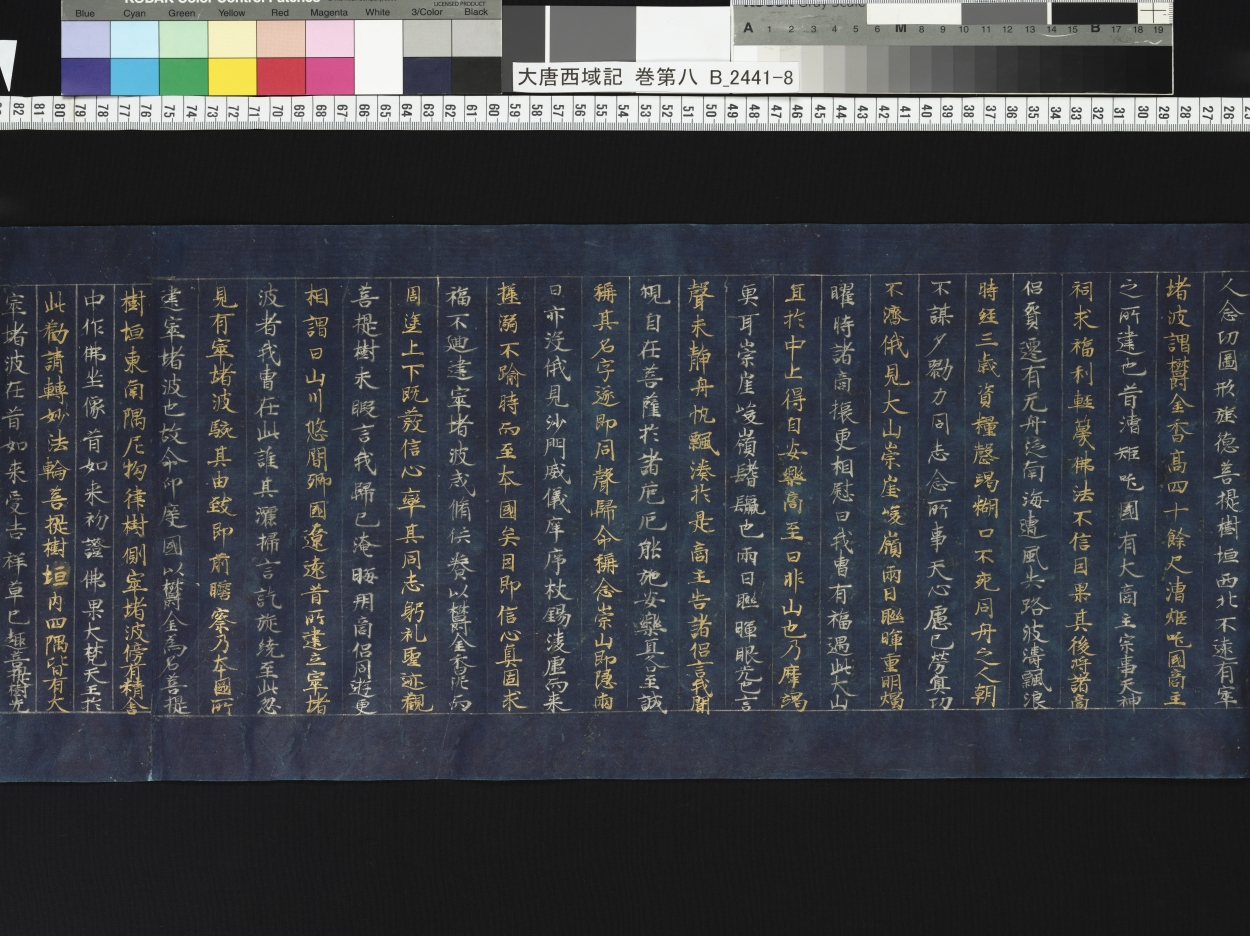 KODAK Color Control Patches
LICENSED PRODUCT
Blue Cyan Green Yellow Red Magenta White 3/Color Black
A 1 2 3 4 5 6 M 8 9 10 11 12 13 14 15 B 17 18 19
大唐西域記 巻第八 B_2441-8
82 81 80 79 78 77 76 75 74 73 72 71 70 69 68 67 66 65 64 63 62 61 60 59 58 57 56 55 54 53 52 51 50 49 48 47 46 45 44 43 42 41 40 39 38 37 36 35 34 33 32 31 30 29 28 27 26
人念功圖形旌德菩提樹垣西北不遠有窣
堵波謂欝金香高四十餘尺漕矩吒國商主
之所建也昔漕矩吒國有大商主宗事天神
祠求福利輕蔑佛法不信因果其後將諸商
侶貿遷有无舟汎南海遭風失路波濤飄浪
時經三歲資糧罄竭糊口不充同舟之人朝
不謀夕勠力同志念所事天心慮已勞冥功
不濟俄見大山崇崖峻嶺兩日聯暉重明燭
曜時諸商侶更相慰曰我曹有福遇此大山
宜於中止得自安樂商主曰非山也乃摩竭
魚耳崇崖峻嶺鬐鬣也兩日聯暉眼光也言
聲未靜舟帆飄湊於是商主告諸侶言我聞
觀自在菩薩於諸危厄能施安樂宜各至誠
稱其名字遂即同聲歸命稱念崇山即隱兩
日亦沒俄見沙門威儀庠序杖錫凌虛而來
拯溺不踰時而至本國矣因即信心貞固求
福不迴建窣堵波式修供養以欝金香泥而
周塗上下既發信心率其同志躬礼聖迹觀
菩提樹未暇言歸已淹晦朔商侶同遊更
相謂曰山川悠間鄉國遼遠昔所建立窣堵
波者我曹在此誰其灑掃言訖旋繞至此忽
見有窣堵波駭其由致即前瞻察乃本國所
建窣堵波也故今印度國以欝金為名菩提
樹垣東南隅尼拘律樹側窣堵波傍有精舍
中作佛坐像昔如來初證佛果大梵天王於
此勸請轉妙法輪菩提樹垣內四隅皆有大
窣堵波在昔如來受吉祥草已趣菩提樹先